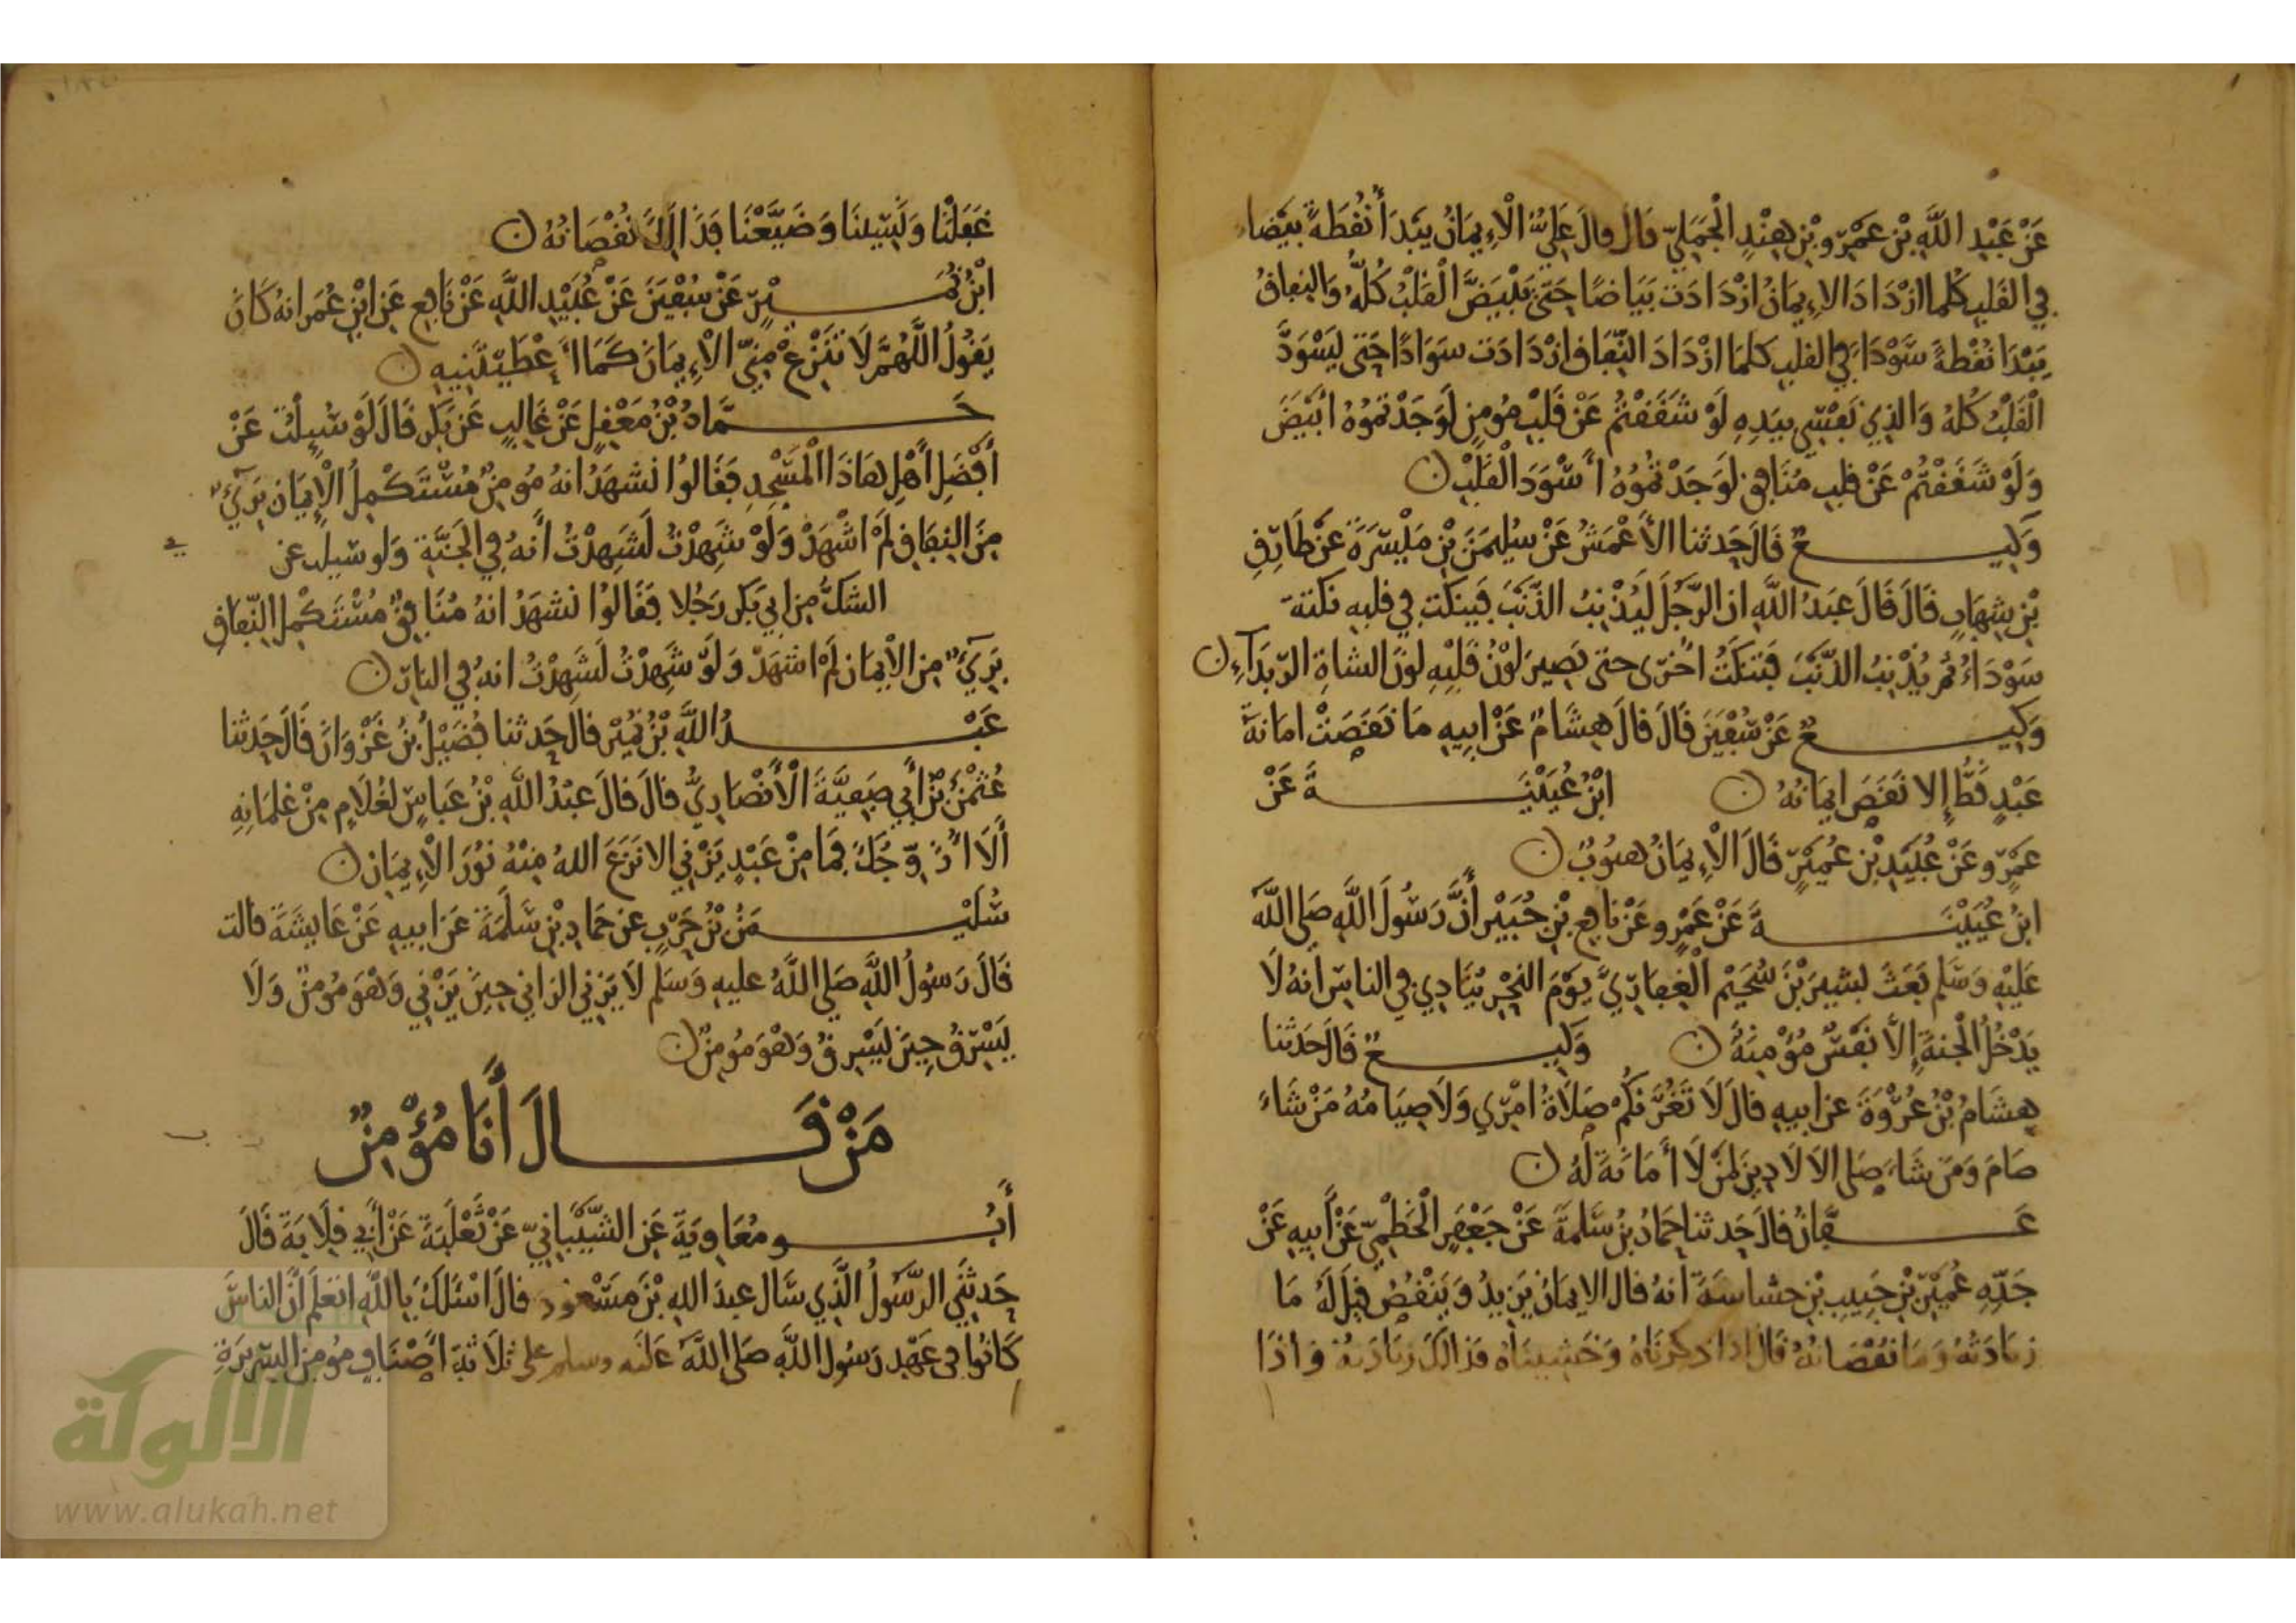 عَنْ عَبْدِ اللَّهِ بْنِ عَمْرِو بْنِ هِنْدٍ الْجَمَلِيِّ قَالَ قَالَ عَلِيٌّ الْإِيمَانُ يَبْدَأُ نُقْطَةً بَيْضَا
فِي القَلْبِ كُلما ازْدَادَ الإِيمَانُ ازْدَادَتْ بَيَاضًا حَتَّى يَبْيَضَّ الْقَلْبُ كُلُّهُ وَالنِفَاقُ
يَبْدَا نُقْطَةً سَوْدَا فِي القلب كلمَا ازْدَادَ النِّفَاق ازْدَادَت سَوَادًا حَتى يَسْوَدَّ
الْقَلْبُ كُلهُ وَالذِي نَفْسِي بِيَدِهِ لَوْ شَقَقْتُمْ عَنْ قَلْبِ مُومِنٍ لَوَجَدْتمُوهُ أبْيَضَ
وَلَوْ شَقَقْتُمْ عَنْ قلب مُنَافِقٍ لَوَجَدْتُمُوُهُ أَسْوَدَ الْقَلْبِ ن
وَكِيعٌ قَالَ حَدثنا الأَعْمَشُ عَنْ سُليمَنَ بْنِ مَيْسَرَةَ عَنْ طَارِقِ
بْنِ شِهَابٍ قَالَ قَالَ عَبدُ اللَّهِ ان الرَّجُلَ لَيُذْنِبُ الذَّنْبَ فَيُنكَتُ فِي قلبِهِ نكتة
سَوْدَاءُ ثُمَّ يُذْنِبُ الذَّنْبَ فَتنكَتُ اخْرَى حتى يَصِيرَ لَوْنُ قَلْبِهِ لَونَ الشاةِ الرَّبدَآءِ ن
وَكِيعٌ عَنْ سُفْيَنَ قَالَ قَالَ هِشَامٌ عَنْ ابِيهِ مَا نَقَصَتْ امَانَةُ
عَبْدٍ قَطُّ إِلا نَقَصَ ايمَانُهُ ن ابْنُ عُيَيْنَةَ عَنْ
عَمْرٍو عَنْ عُبَيْدِ بْنِ عُمَيْرٍ قَالَ الْإِيمَانُ هيُوبٌ ن
ابنُ عُيَيْنَةَ عَنْ عَمْرٍو عَنْ نَافِعِ بْنِ جُبَيْرٍ أَنَّ رَسُولَ اللَّهِ صَلى اللَّهُ
عَلَيْهِ وَسَلم بَعَثَ بِشِيرَ بْنَ سُحَيْمٍ الْغِفَارِيَّ يَوْمَ النحْرِ يُنَادِي فِي الناسِ أنهُ لَا
يَدْخُلُ الْجنةَ إِلَّا نَفْسٌ مُؤْمِنَةٌ ن وَكِيعٌ قَالَ حَدَثنا
هِشَامُ بْنُ عُرْوَةَ عن ابيهِ قالَ لَا تَغُرَّنكُمْ صَلَاةُ امْرِي وَلَا صِيَامُهُ مَنْ شَاءَ
صَامَ وَمَن شَاءَ صَلى الا لَا دِينَ لِمَنْ لَا أَمَانَةَ لَهُ ن
عَفَّانُ قالَ حَدثنا حَمادُ بْنُ سَلَمَةَ عَنْ جَعْفَرٍ الْخَطْمِيِّ عَنْ أَبِيهِ عَنْ
جَدِّهِ عُمَيْرِ بْنِ حَبِيبِ بْنِ حشاسةَ أنهُ قال الايمَانُ يَزِيدُ وَيَنْقُصُ قِيلَ لَهُ مَا
زيَادَتُهُ وَمَا نُقْصَانهُ قَالَ اذا ذكرنَاهُ وَخَشِينَاهُ فَذالكَ زيَادَتهُ وَاذَا
غَفَلْنَا وَنَسِيْنَا وَضَيَّعْنَا فَذَالِكَ نُقْصَانُهُ ن
ابْنُ نُمَيْرٍ عَنْ سُفْيَنَ عَنْ عُبَيْدِ اللَّهِ عَنْ نَافِعٍ عَن ابْنِ عُمَرَ انهُ كَانَ
يَقُولُ اللَّهُمَّ لَا تَنْزَعْ مِنِّي الْإِيمَانَ كَمَا أَعْطَيْتَنِيهِ ن
حَمَّادُ بْنُ مَعْقِلٍ عَنْ غَالِبٍ عَن بَكْرٍ قَالَ لَوْ سُيِلْتُ عَنْ
أَفْضَلِ أَهْلِ هَاذَا الْمَسْجِدِ فَقَالُوا نَشهَدُ انهُ مُومِنٌ مُسْتَكْمِلُ الْإِيمَانِ بَرِيءٌ
مِنَ النِفَاقِ لَمْ اشْهَدْ وَلَوْ شَهِدْتُ لَشَهِدْتُ أَنهُ فِي الْجَنَّةِ وَلو سُيلت عن
الشكُّ مِن ابِي بَكر رَجُلا فَقَالُوا نشهَدُ انهُ مُنَافِقٌ مُسْتَكْمِلُ النِّفَاقِ
بَرِيءٌ مِن الْإِيمَان لَمْ اشهَدْ وَلَوْ شَهِدْتُ لَشَهِدْتُ انهُ فِي النارِ ن
عَبْدُ اللَّهِ بْنُ نُمَيْرٍ قالَ حَدثنا فُضَيْلُ بْنُ غَزْوَانَ قَالَ حَدَثنا
عُثمْنُ بْنُ أَبِي صَفِيَّةَ الْأَنْصَارِيُّ قالَ قالَ عبْدُ اللَّهِ بْنُ عَباسٍ لغُلَامٍ مِنْ غِلمَانِهِ
أَلَا أُزَوِّجُكَ فَمَا مِنْ عَبْدٍ يَزْنِي الا نَزَعَ اللهُ مِنْهُ نُورَ الْإِيمَانِ ن
سُلَيْمَنُ بْنُ حَرْبٍ عن حَمادِ بْنِ سَلَمَةَ عَن ابيهِ عَنْ عَايشَةَ قالت
قَالَ رَسُولُ اللَّهِ صَلى اللَّهُ عليهِ وَسَلم لَا يَزني الزاني حِينَ يَزْنِي وَهْوَ مُومِنٌ وَلَا
يَسْرِقُ حِينَ يَسْرِقُ وَهْوَ مُومِنٌ ن
مَنْ قَالَ أَنَا مُؤْمِنٌ
أَبُو مُعَاوِيَةَ عَنِ الشَّيْبَانِيِّ عَنْ ثَعْلَبَةَ عَنْ أَبِي قِلَابَةَ قَالَ
حَدثنِي الرَّسُولُ الَّذِي سَال عبدَ اللهِ بْنَ مَسْعُودٍ قالَ اسْئلكَ بِاللَّهِ اتعلم أَنَّ الناسَ
كَانُوا فِي عَهْدِ رَسُولِ اللَّهِ صَلى اللَّهُ عَلَيه وسلم على ثلَاثةِ أَصْنَافٍ مُومِن السَّرِيرَةِ
الألوكة
www.alukah.net